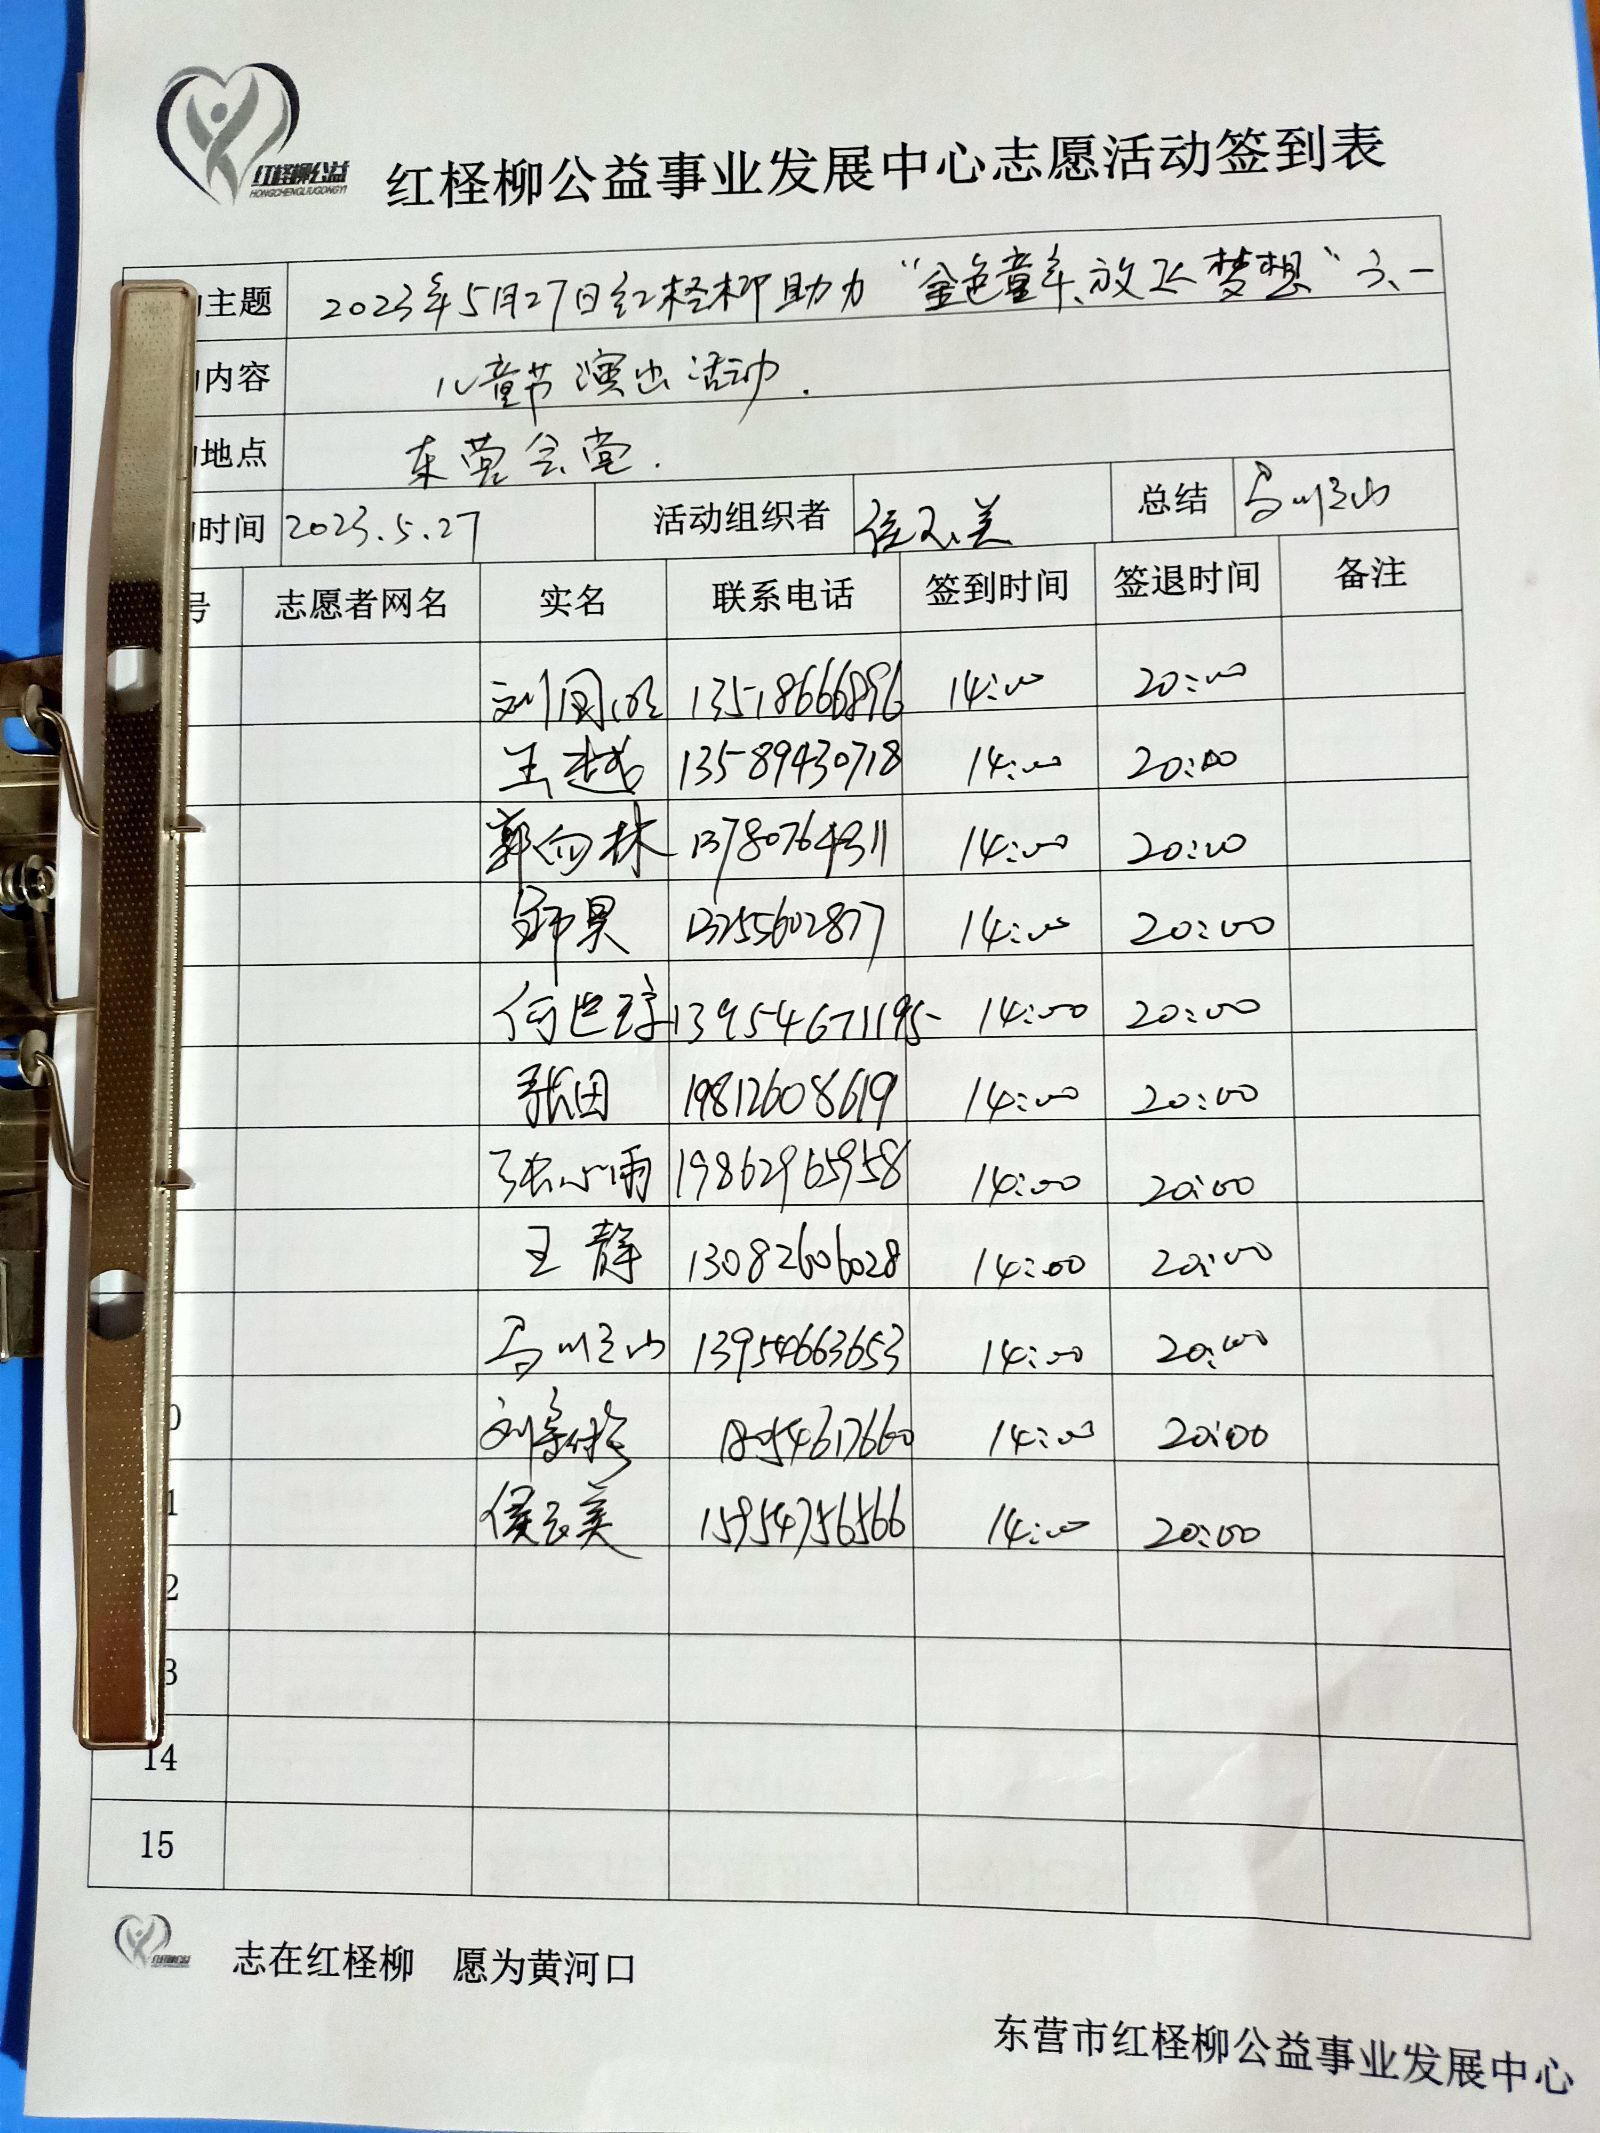 红柽柳公益
HONGCHENGLIUGONGYI
红柽柳公益事业发展中心志愿活动签到表
主题 2023年5月27日红柽柳助力“金色童年、放飞梦想”六、一
内容 儿童节演出活动.
地点 东营会堂.
时间 2023.5.27 活动组织者 总结
号 志愿者网名 实名 联系电话 签到时间 签退时间 备注
刘 13518666896 14:00 20:00
王越 13589430718 14:00 20:00
郭向林 13780764311 14:00 20:00
13255602877 14:00 20:00
何 13954671195 14:00 20:00
张田 19812608619 14:00 20:00
张小雨 19862965958 14:00 20:00
王静 13082606028 14:00 20:00
13954663653 14:00 20:00
0 刘 18054617660 14:00 20:00
1 侯玉美 15954756566 14:00 20:00
2
3
14
15
志在红柽柳 愿为黄河口
东营市红柽柳公益事业发展中心